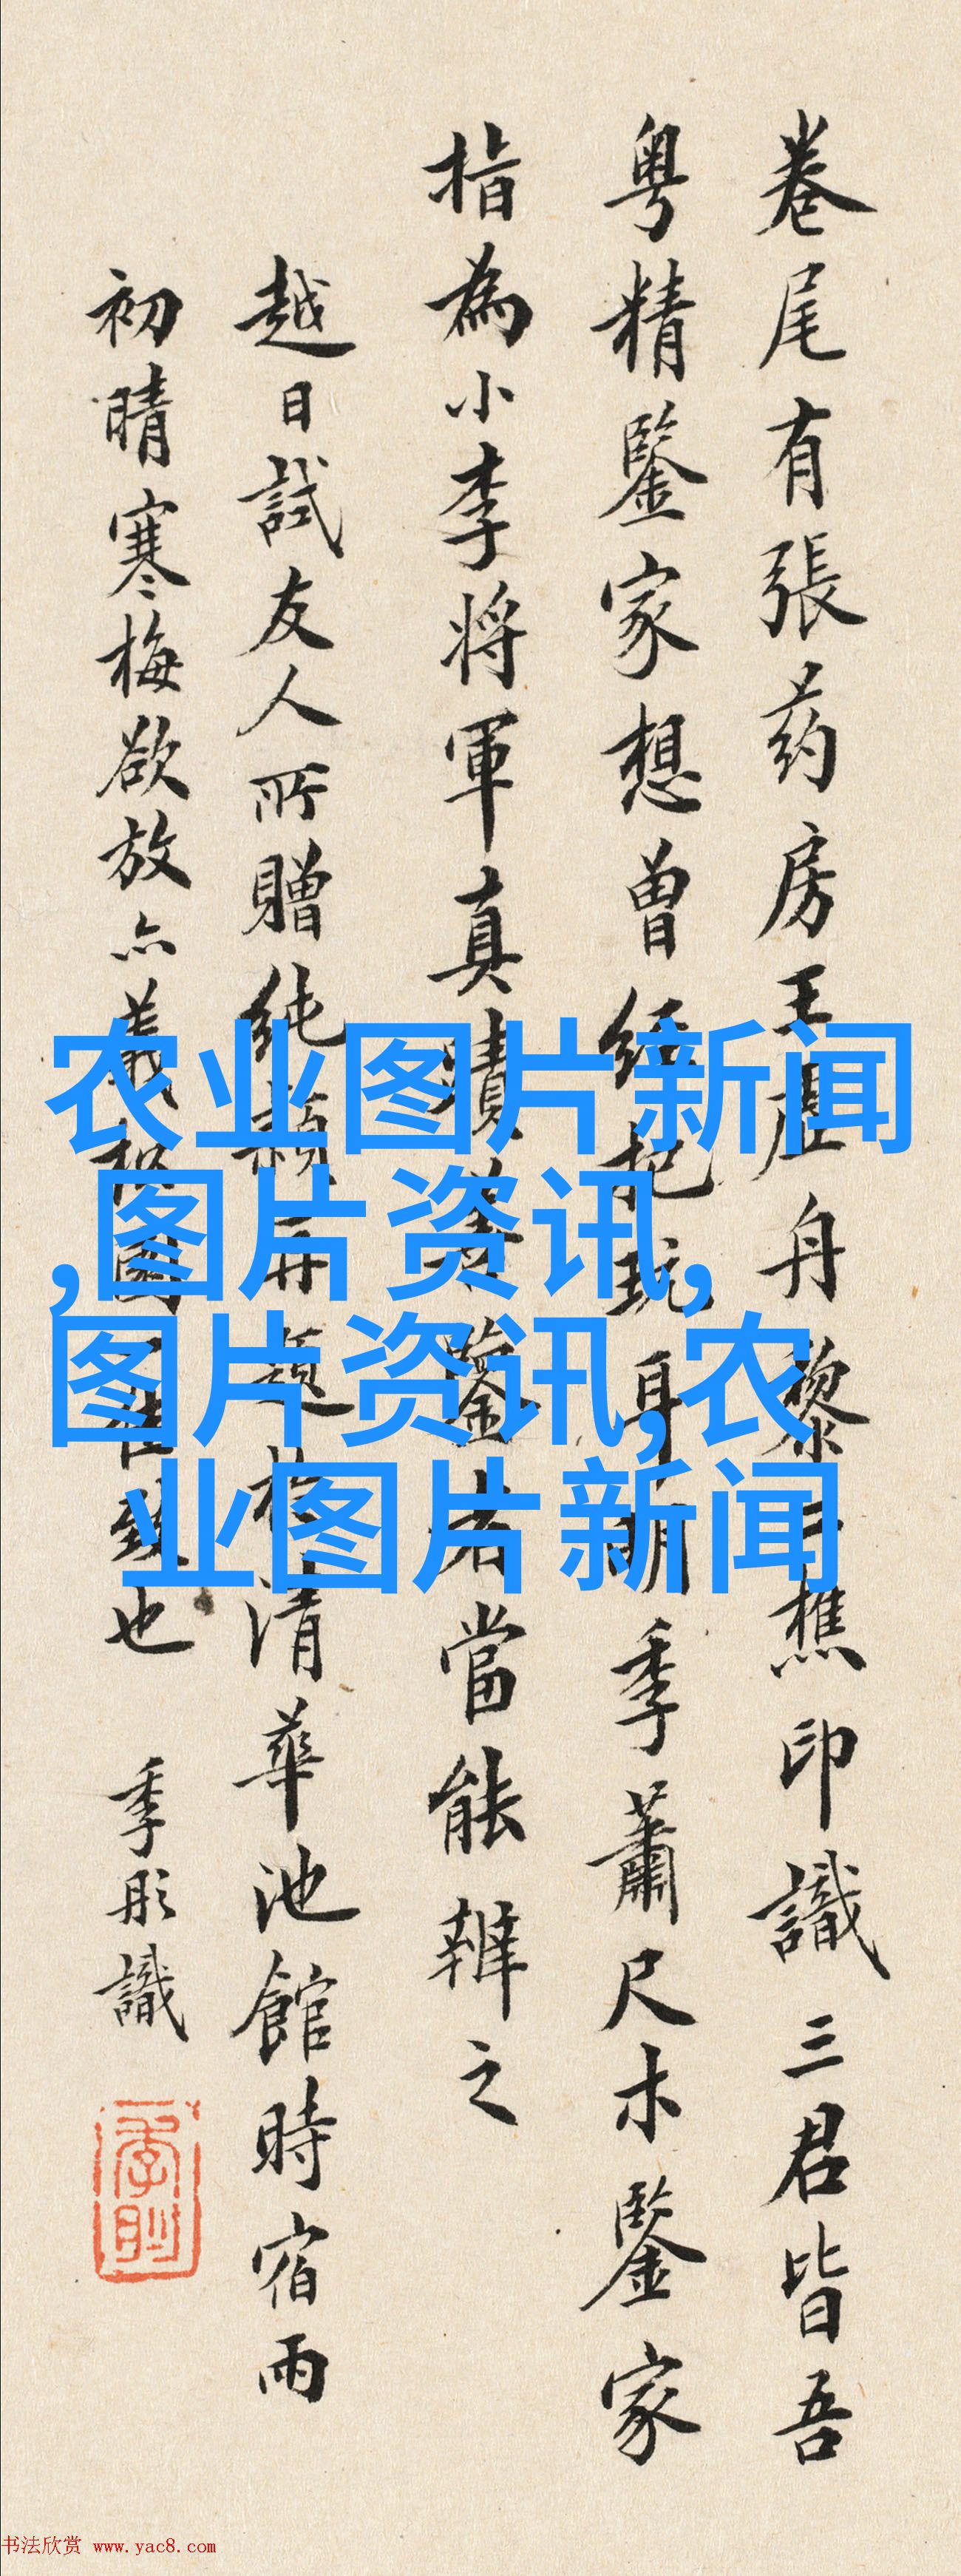 卷尾有張药房王虛舟黎二樵印識三君皆吾
粤精鑒家想曾經把玩耳明季蕭尺木鑒家
指為小李将軍真蹟善鑒者當能辨之
越日試友人所贈純穎再題於清華池館時宿雨
初晴寒梅欲放亦圖一佳也 季彤識
农业图片新闻
,图片资讯,
图片资讯,农
业图片新闻
书法欣赏 www.yac8.com